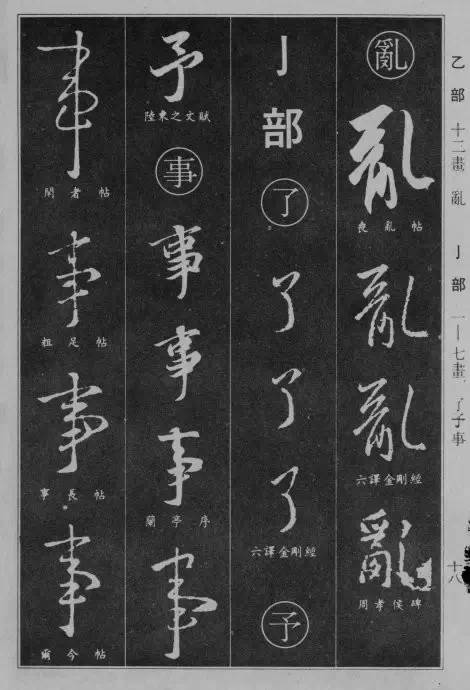 乙部 十二畫 亂 亅部 一—七畫 了予事
十八
亂
亂
喪亂帖
亂
亂
六譯金剛經
亂
周孝侯碑
亅部
了
了
了
了
六譯金剛經
予
予
陸柬之文賦
事
事
事
事
蘭亭序
事
事
闊者帖
事
祖足帖
事
事長帖
事
爾今帖